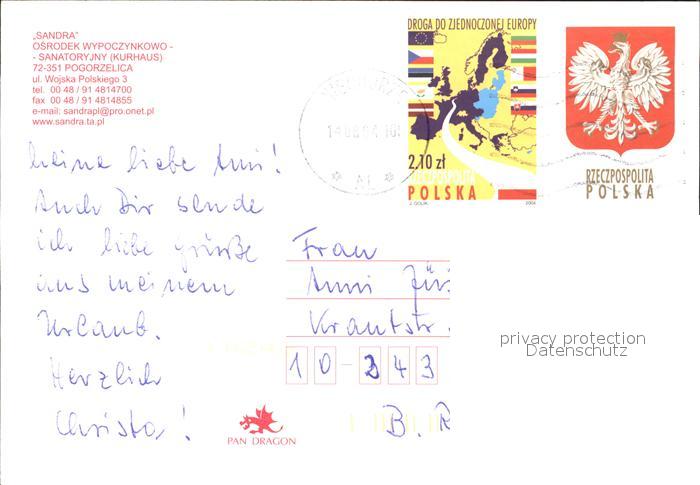 „SANDRA"
OŚRODEK WYPOCZYNKOWO -
- SANATORYJNY (KURHAUS)
72-351 POGORZELICA
ul. Wojska Polskiego 3
tel. 00 48 / 91 4814700
fax 00 48 / 91 4814855
e-mail: sandrapl@pro.onet.pl
www.sandra.ta.pl
DROGA DO ZJEDNOCZONEJ EUROPY
2,10 zł
RZECZPOSPOLITA
POLSKA
J. GOLIK 2004
RZECZPOSPOLITA
POLSKA
meine liebe Anni!
Auch Dir sende
ich liebe Grüße
aus meinem
Urlaub.
Herzlich
Christa!
Frau
Anni
Krautstr.
10-243
B.
privacy protection
Datenschutz
PAN DRAGON